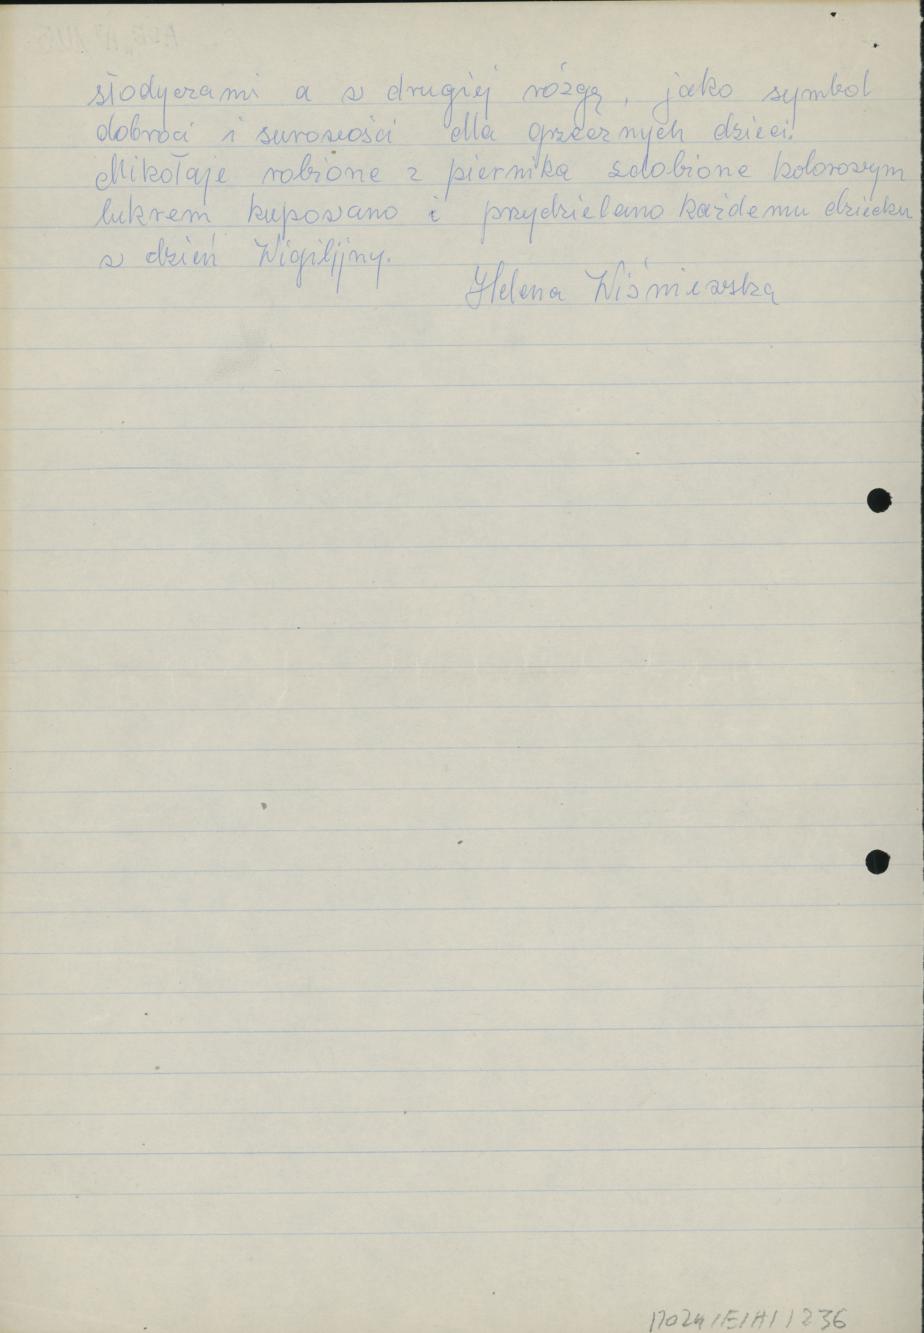 słodyczami a w drugiej rózgą, jako symbol
dobroci i surowości dla grzecznych dzieci.
Mikołaje robione z piernika zdobione kolorowym
lukrem kupowano i przydzielano każdemu dziecku
w dzień Wigilijny.
Helena Wiśniewska